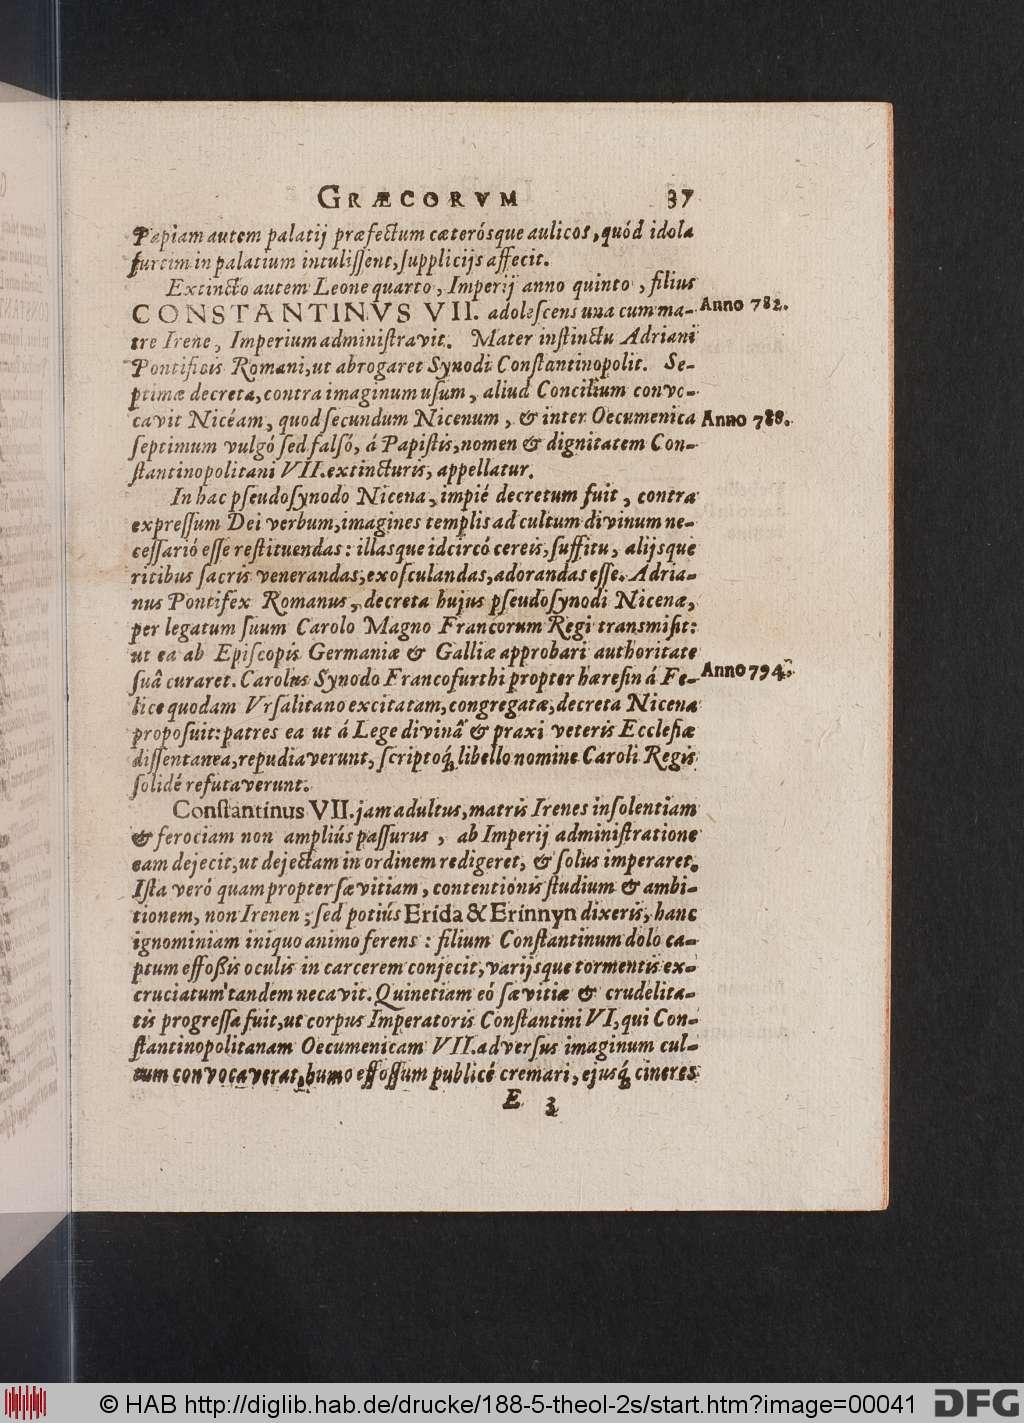 GRÆCORVM 37
Papiam autem palatij præfectum cæterósque aulicos, quód idola
furtim in palatium intulissent, supplicijs affecit.
Extincto autem Leone quarto, Imperij anno quinto, filius
CONSTANTINVS VII. adolescens una cum ma- Anno 782.
tre Irene, Imperium administravit. Mater instinctu Adriani
Pontificis Romani, ut abrogaret Synodi Constantinopolit. Se-
ptimæ decreta, contra imaginum usum, aliud Concilium convo-
cavit Nicéam, quod secundum Nicenum, & inter Oecumenica Anno 788.
septimum vulgó sed falsó, á Papistis, nomen & dignitatem Con-
stantinopolitani VII. extincturis, appellatur.
In hac pseudosynodo Nicena, impié decretum fuit, contra
expressum Dei verbum, imagines templis ad cultum divinum ne-
cessarió esse restituendas: illasque idcircó cereis, suffitu, alijsque
ritibus sacris venerandas, exosculandas, adorandas esse. Adria-
nus Pontifex Romanus, decreta hujus pseudosynodi Nicenæ,
per legatum suum Carolo Magno Francorum Regi transmisit:
ut ea ab Episcopis Germaniæ & Galliæ approbari authoritate
suâ curaret. Carolus Synodo Francofurthi propter hæresin á Fe- Anno 794.
lice quodam Vrsalitano excitatam, congregatæ, decreta Nicena
proposuit: patres ea ut á Lege divinâ & praxi veteris Ecclesiæ
dissentanea, repudiaverunt, scriptoq́ libello nomine Caroli Regis
solidé refutaverunt.
Constantinus VII. jam adultus, matris Irenes insolentiam
& ferociam non ampliús passurus, ab Imperij administratione
eam dejecit, ut dejectam in ordinem redigeret, & solus imperaret.
Ista veró quam propter sævitiam, contentionis studium & ambi-
tionem, non Irenen; sed potiús Erida & Erinnyn dixeris, hanc
ignominiam iniquo animo ferens: filium Constantinum dolo ca-
ptum effoßis oculis in carcerem conjecit, varijsque tormentis ex-
cruciatum tandem necavit. Quinetiam eó sævitiæ & crudelita-
tis progressa fuit, ut corpus Imperatoris Constantini VI, qui Con-
stantinopolitanam Oecumenicam VII. adversus imaginum cul-
tum convocaverat, humo effossum publicé cremari, ejusq́ cineres
E 3
© HAB http://diglib.hab.de/drucke/188-5-theol-2s/start.htm?image=00041
DFG